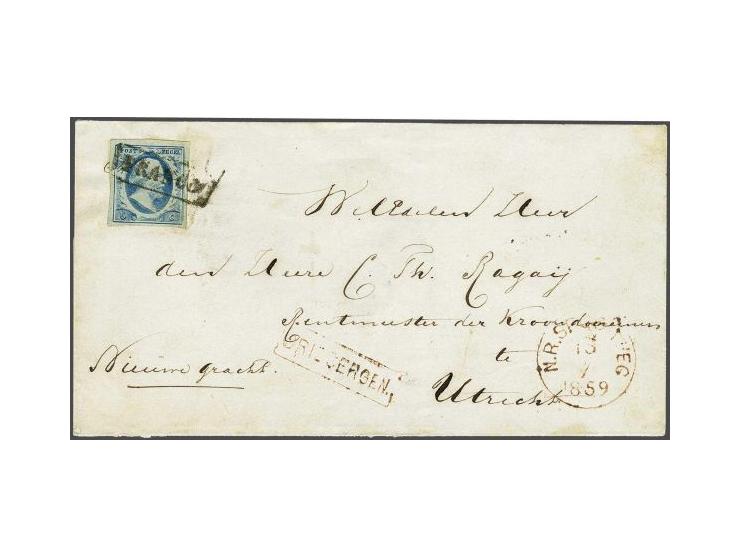 POST ZEGEL
FRANCO
WelEdelen Heer
den Heere C. Th. Ragaij
Rentmeester der Kroondomeinen
te
Utrecht
Nieuwe gracht.
DRIEBERGEN.
N.R.SPOORWEG
13
1859